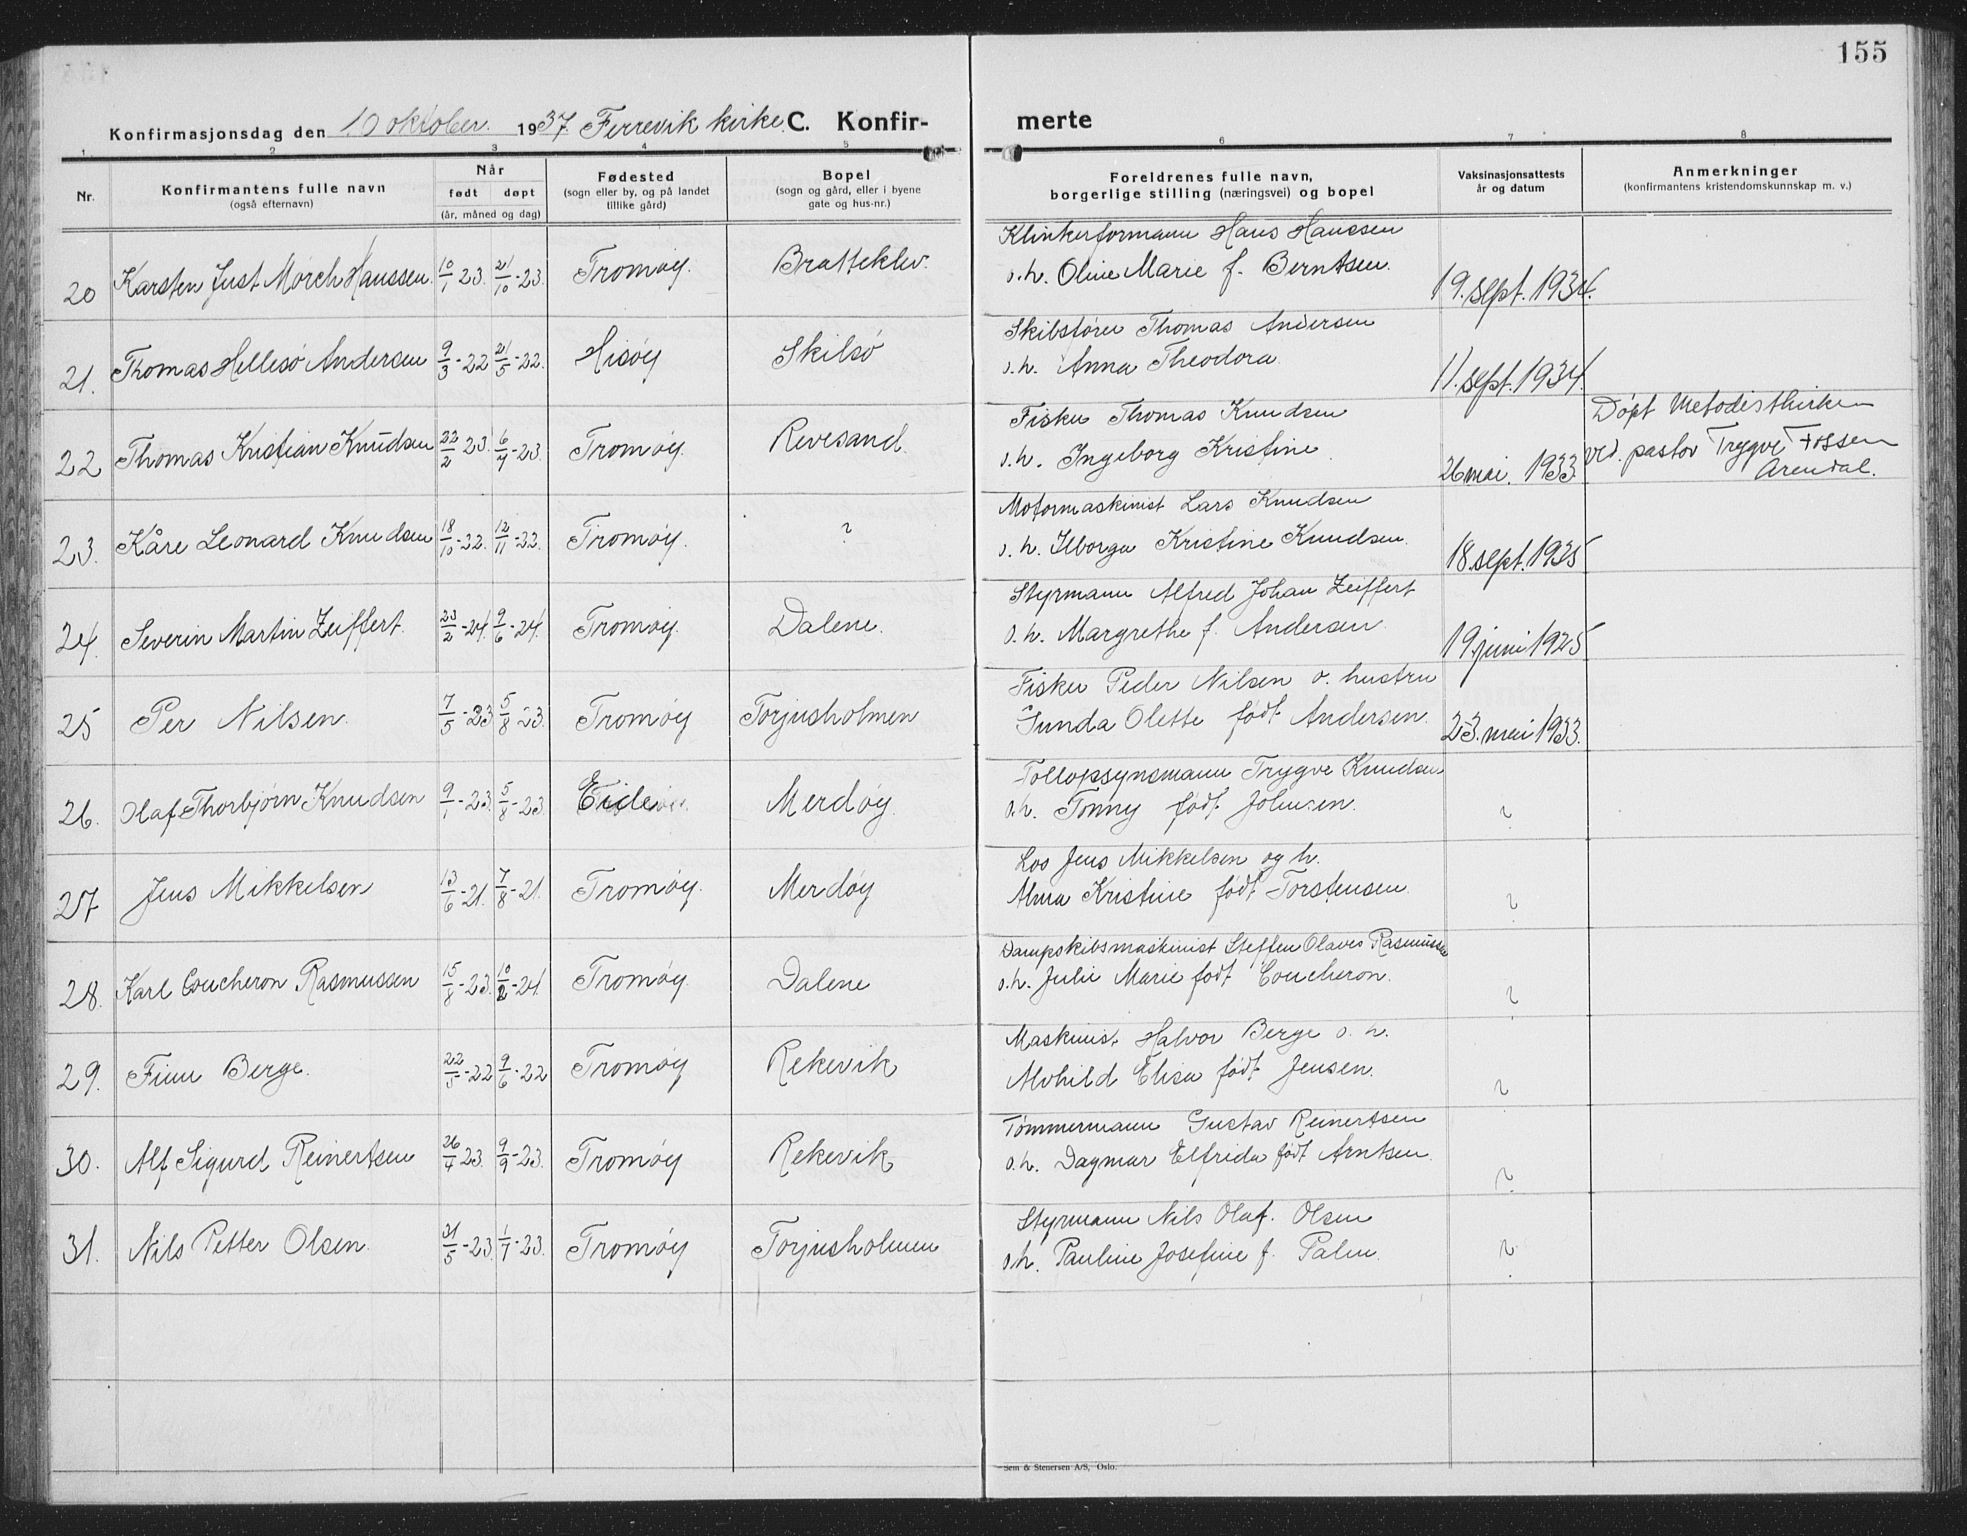 155
Konfirmasjonsdag den 10 oktober. 1937. Færevik kirke C. Konfir-
merte
1 2 3 4 5 6 7 8
Nr. Konfirmantens fulle navn (også efternavn) Når født døpt (år, måned og dag) Fødested (sogn eller by, og på landet tillike gård) Bopel (sogn og gård, eller i byene gate og hus-nr.) Foreldrenes fulle navn, borgerlige stilling (næringsvei) og bopel Vaksinasjonsattests år og datum Anmerkninger (konfirmantens kristendomskunnskap m. v.)
Klinkerformann Hans Hanssen
20 Karsten Just Mörch Hanssen. 10/1-23. 21/10-23. Tromøy. Bratteklev. o.h. Oline Marie f. Berntsen. 19. sept. 1934.
Skibsfører Thomas Andersen
21. Thomas Hellesö Andersen 9/3-22 21/5-22. Hisøy Skilsø o.h. Anna Theodora. 11. sept. 1934.
Fisker Thomas Knudsen Döpt Metodistkirken
22 Thomas Kristian Knudsen 22/2-23. 6/7-23. Tromøy. Revesand o.h. Ingeborg Kristine. 26 mai. 1933. ved. pastor Trygve Fossen
Arendal.
Motormaskinist Lars Knudsen
23. Kåre Leonard Knudsen 18/10-22. 12/11-22. Tromøy. ? o.h. Ilborga Kristine Knudsen. 18. sept. 1935
Styrmann Alfred Johan Zeiffert
24. Severin Martin Zeiffert. 23/2-24. 9/6-24. Tromøy. Dalene. o.h. Margrethe f. Andersen. 19 juni 1925
Fisker Peder Nilsen o. hustru
25 Per Nilsen. 7/5-23 5/8-23. Tromøy Torjusholmen Gunda Olette født Andersen. 23. mai 1933.
Tollopsynsmann Trygve Knudsen
26. Olaf Thorbjørn Knudsen 9/1-23. 5/8-23. Eide Merdøy. o.h. Tonny født Johnsen. ?
Los Jens Mikkelsen og h.
27 Jens Mikkelsen 13/6-21. 7/8-21. Tromøy. Merdøy Alma Kristine født Torstensen. ?
Dampskibsmaskinist Steffen Olaves Rasmussen
28. Karl Coucheron Rasmussen 15/8-23. 10/2-24. Tromøy. Dalene o.h. Julie Marie født Coucheron. ?
Maskinist Halvor Berge o.h.
29. Finn Berge. 22/5-22 9/6-22 Tromøy Rekevik Alvhild Elisa født Jensen. ?
Tømmermann Gustav Reinertsen
30. Alf Sigurd Reinertsen 26/4-23. 9/9-23. Tromøy Rekevik o.h. Dagmar Elfrida født Arntsen. ?
Styrmann Nils Olaf. Olsen
31. Nils Petter Olsen. 31/5-23. 1/7-23. Tromøy Torjusholmen o.h. Pauline Josefine f. Palm. ?
Sem & Stenersen A/S, Oslo.